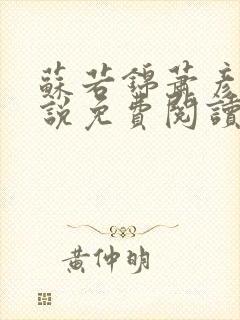 蘇若錦蕭彥
說免費閱讀
黃仲明